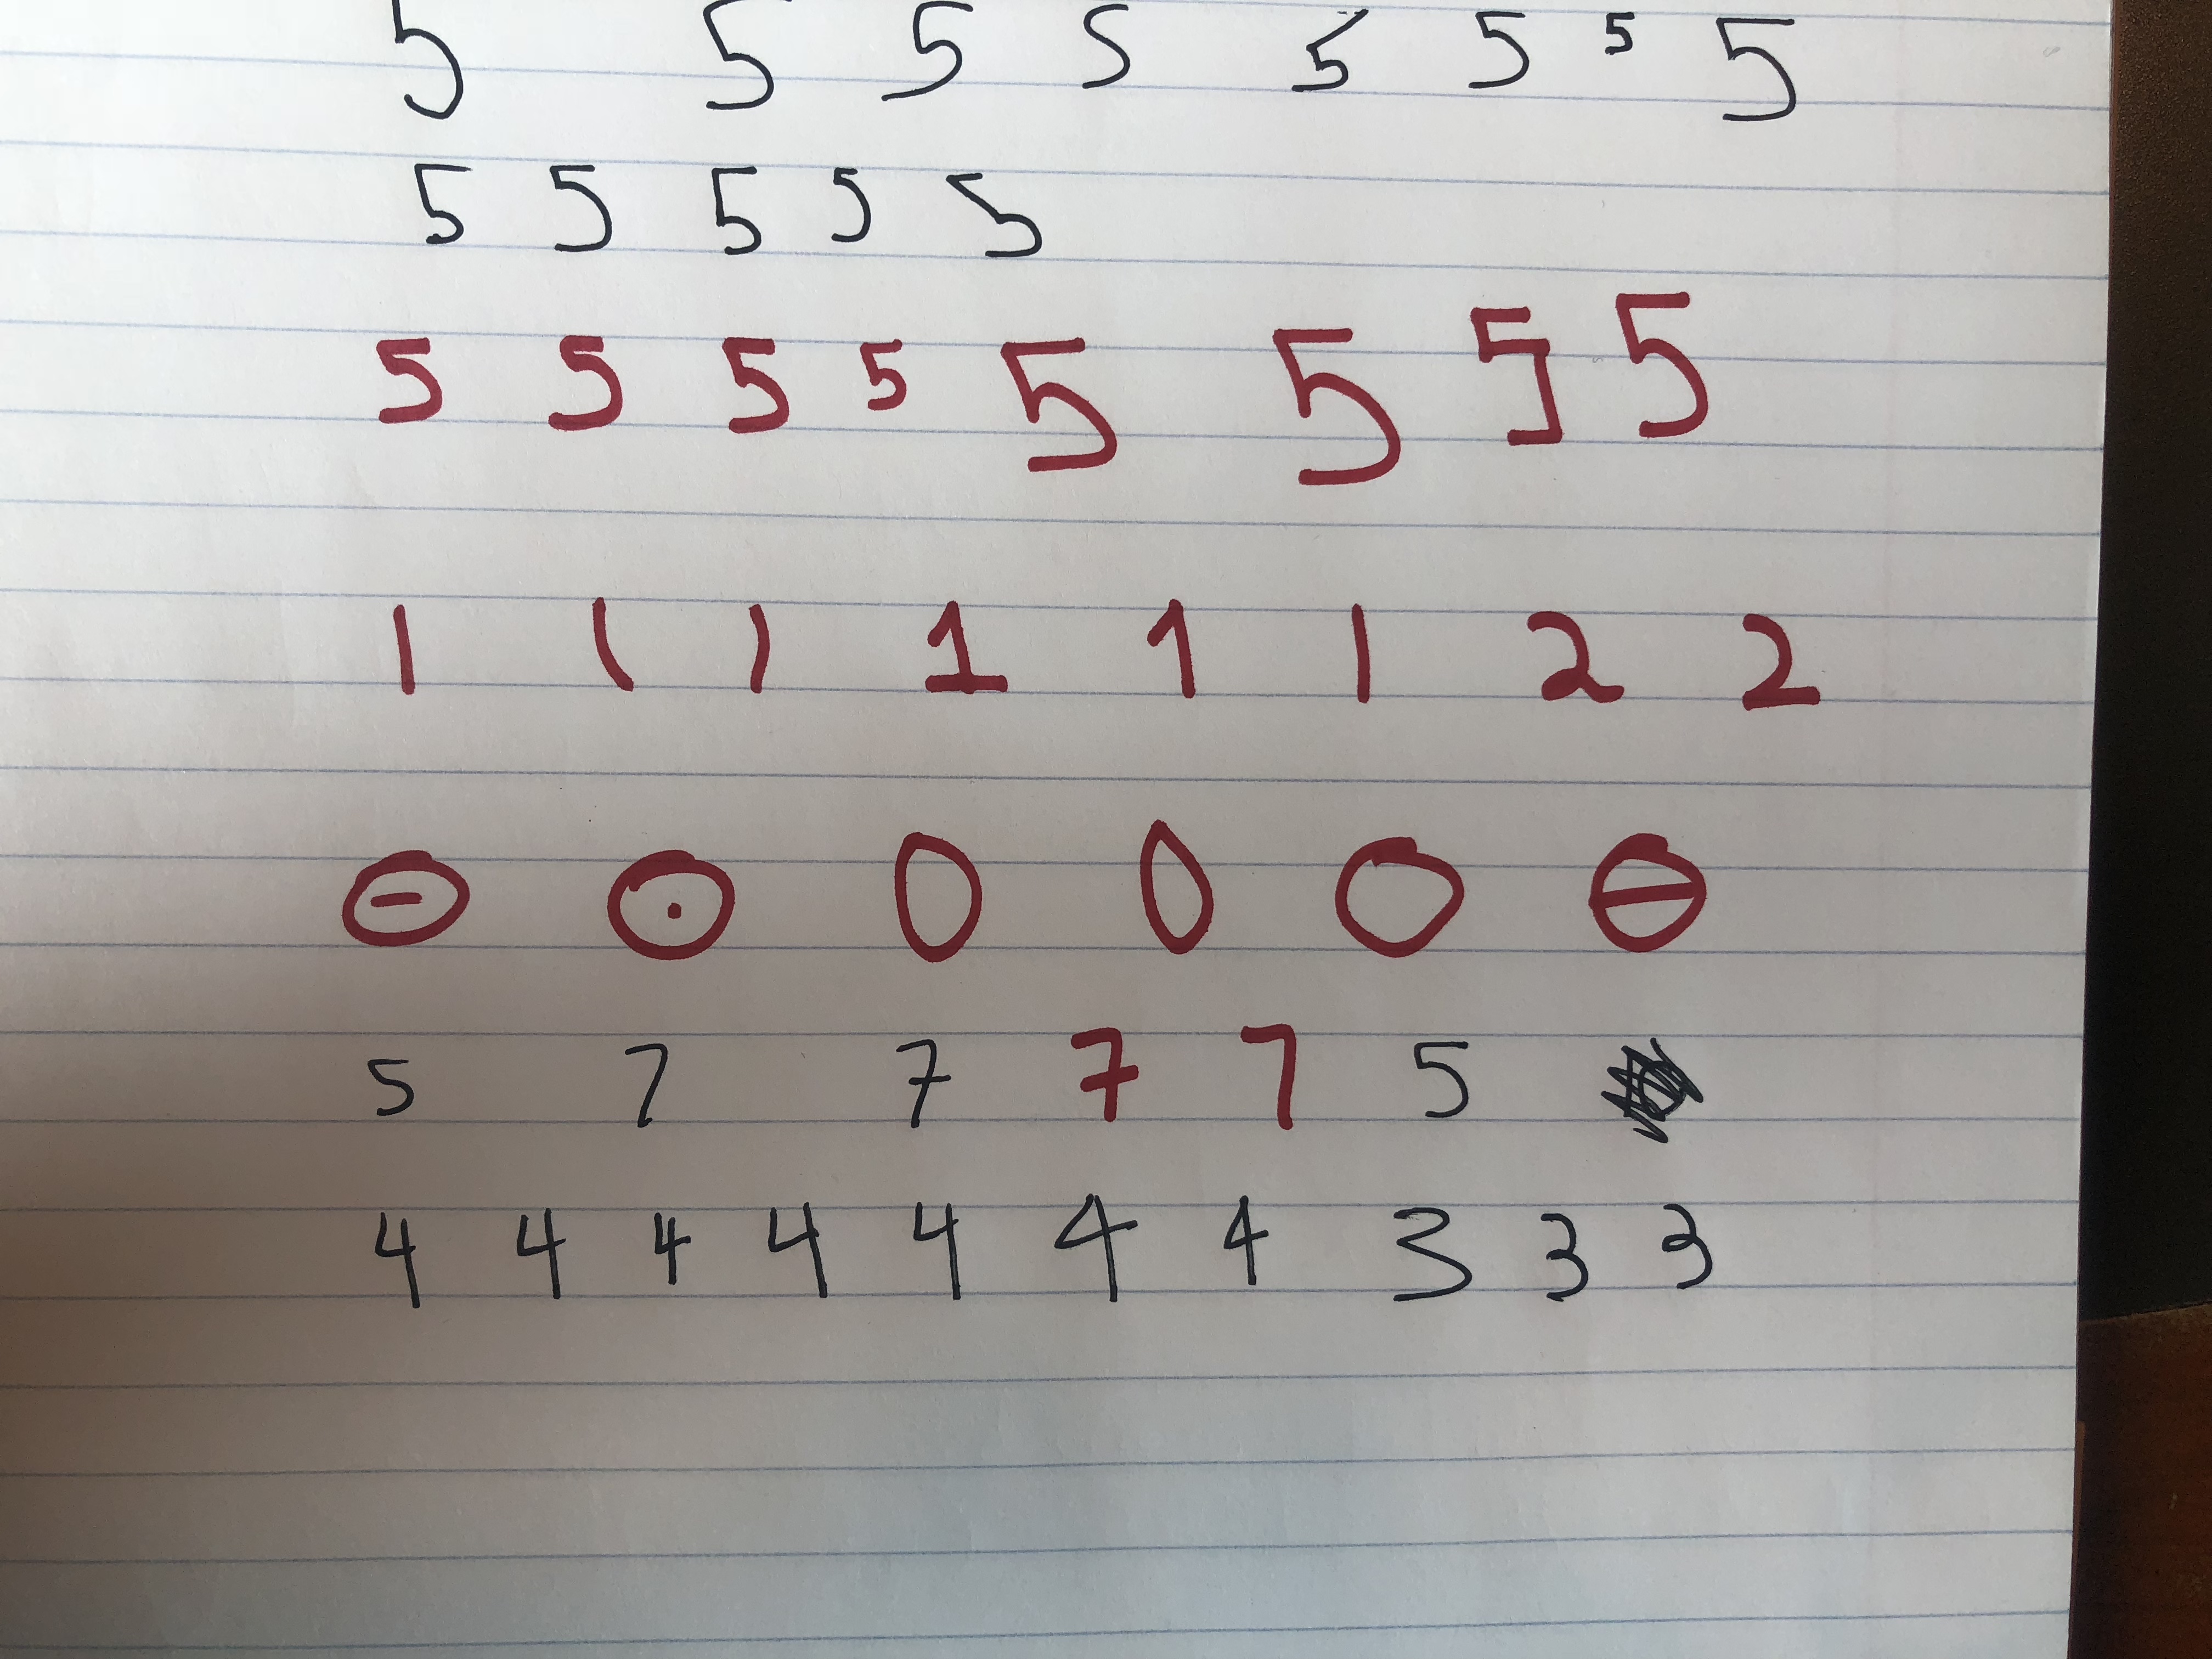 5 5 5 5 5 5 5 5
5 5 5 5 5
5 5 5 5 5 5 5 5
1 1 1 1 1 1 2 2
0 0 0 0 0 0
5 7 7 7 7 5
4 4 4 4 4 4 4 3 3 3